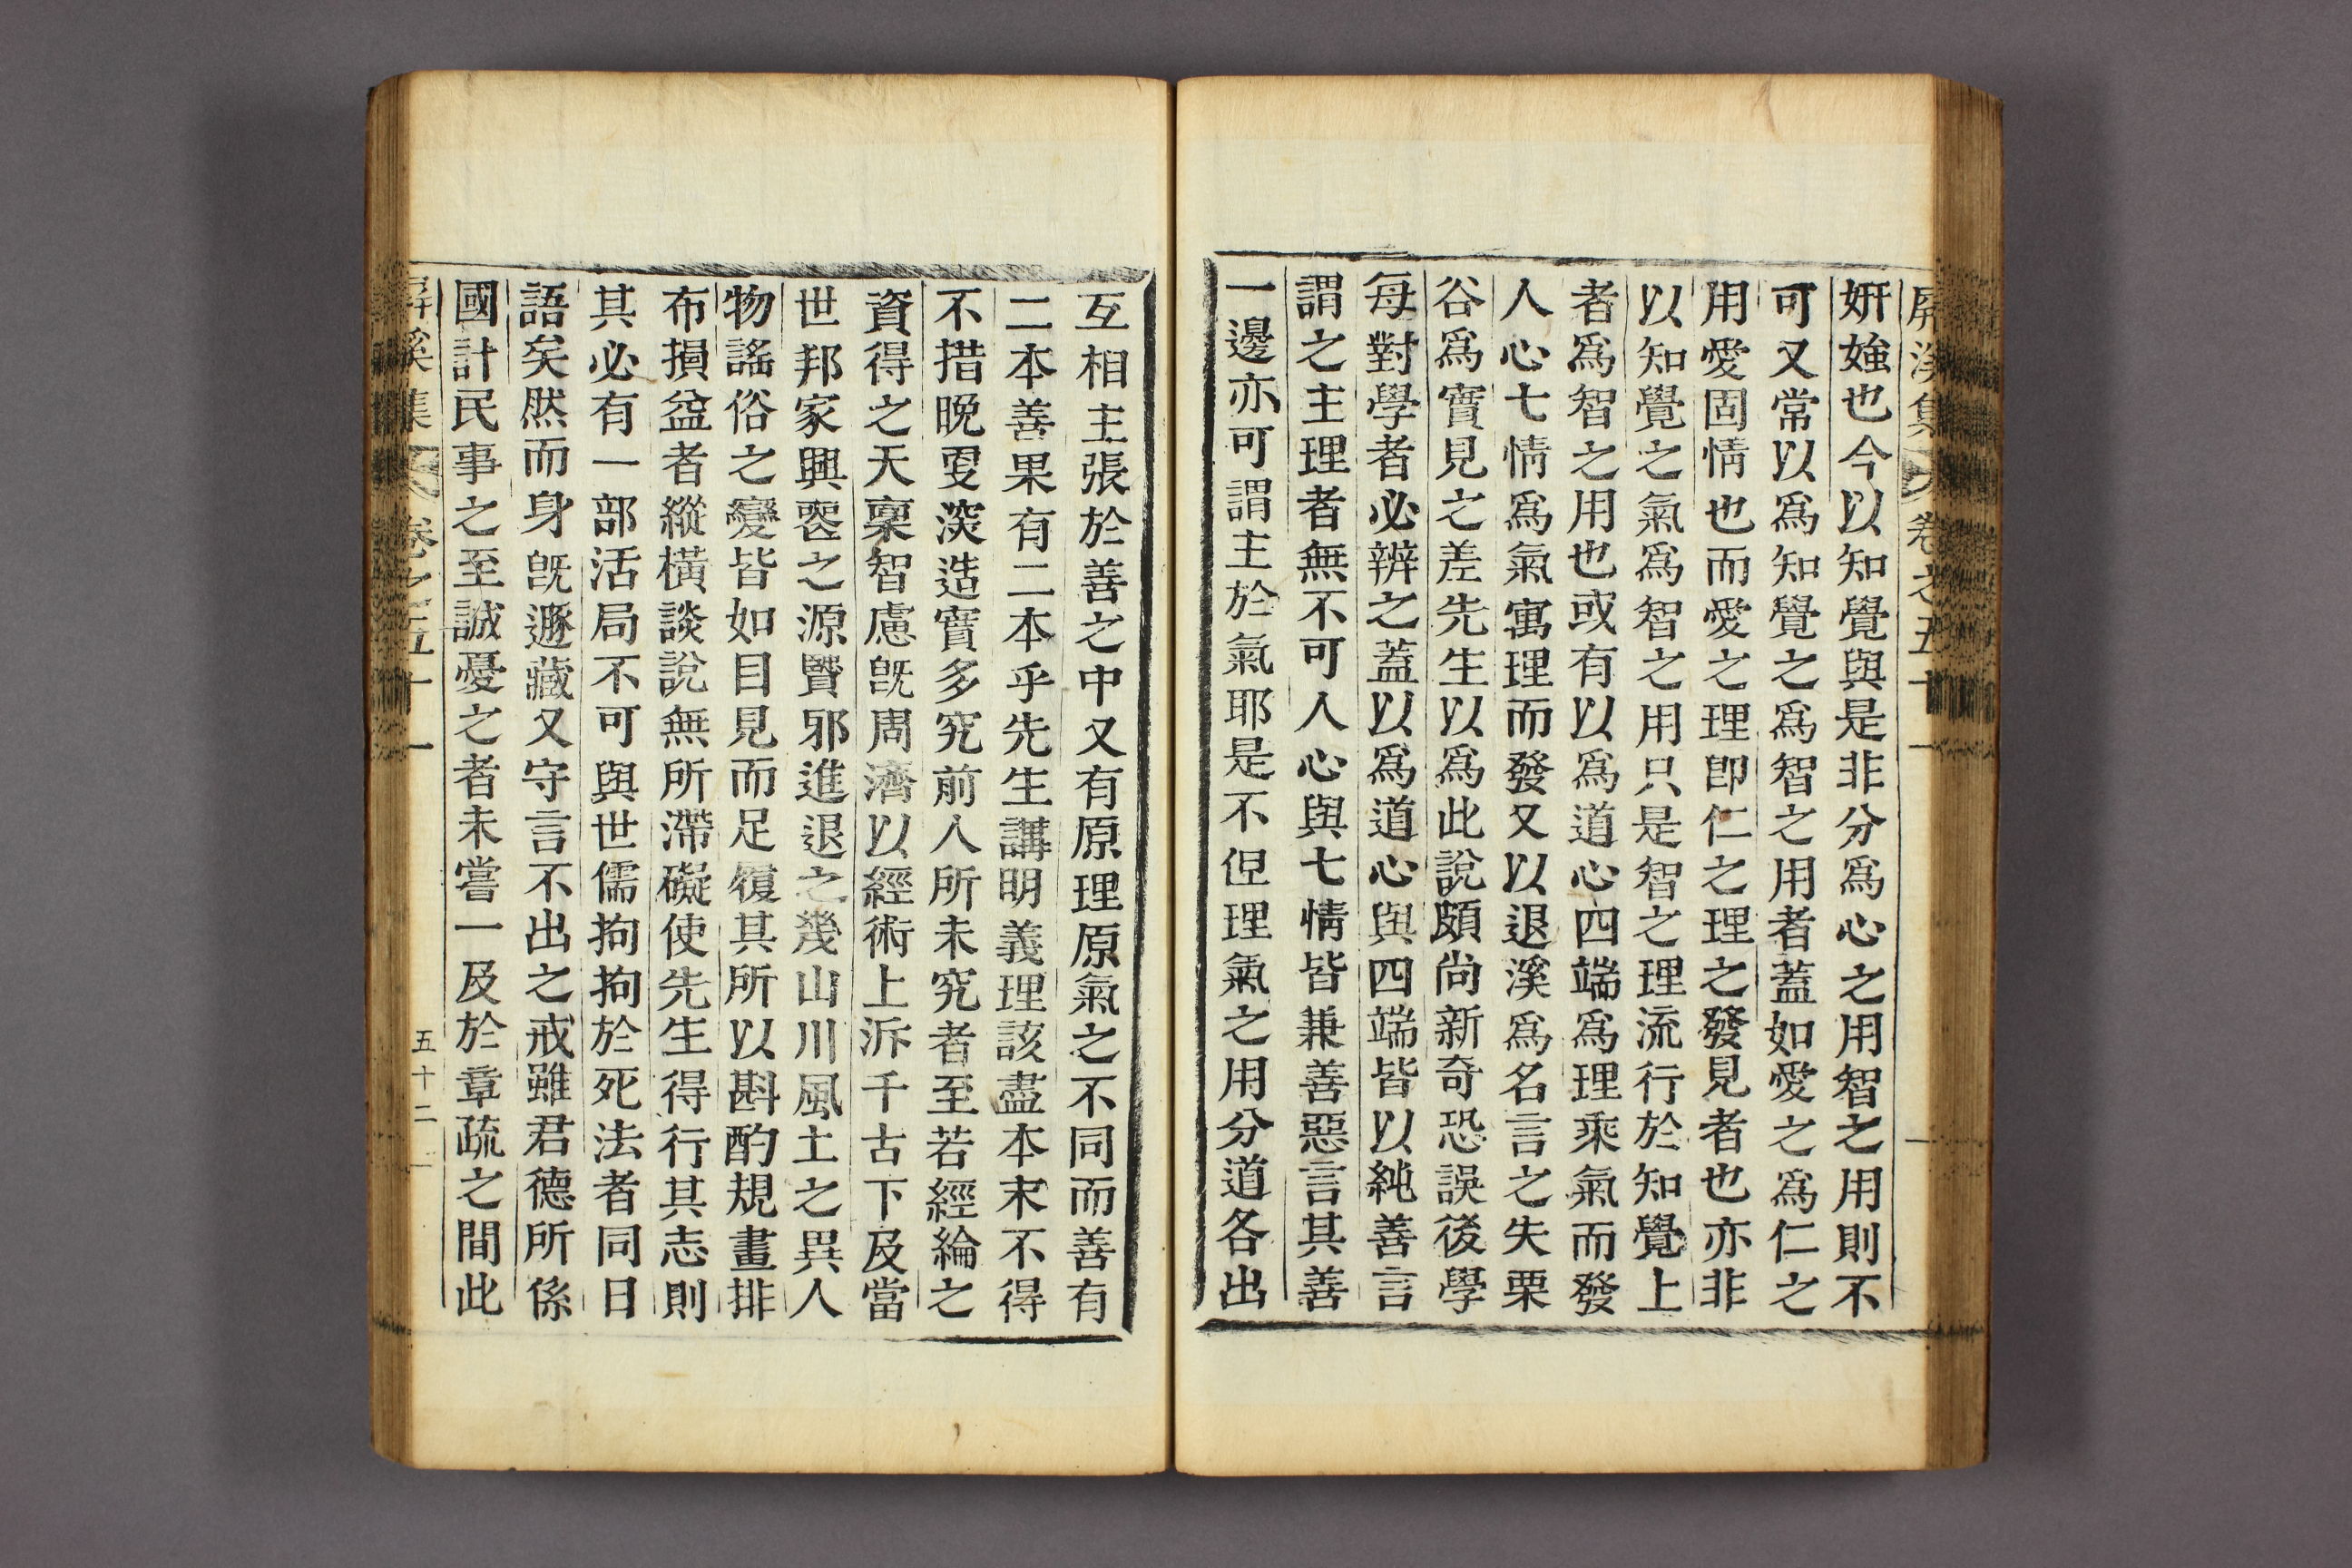 屏溪集
卷之五十一
姸媸也今以知覺與是非分爲心之用智之用則不
可又常以爲知覺之爲智之用者蓋如愛之爲仁之
用愛固情也而愛之理卽仁之理之發見者也亦非
以知覺之氣爲智之用只是智之理流行於知覺上
者爲智之用也或有以爲道心四端爲理乘氣而發
人心七情爲氣寓理而發又以退溪爲名言之失栗
谷爲實見之差先生以爲此說頗尙新奇恐誤後學
每對學者必辨之蓋以爲道心與四端皆以純善言
謂之主理者無不可人心與七情皆兼善惡言其善
一邊亦可謂主於氣耶是不但理氣之用分道各出
互相主張於善之中又有原理原氣之不同而善有
二本善果有二本乎先生講明義理該盡本末不得
不措晩更深造實多究前人所未究者至若經綸之
資得之天稟智慮旣周濟以經術上泝千古下及當
世邦家興喪之源賢邪進退之幾山川風土之異人
物謠俗之變皆如目見而足履其所以斟酌規畫排
布損益者縱橫談說無所滯礙使先生得行其志則
其必有一部活局不可與世儒拘拘於死法者同日
語矣然而身旣遯藏又守言不出之戒雖君德所係
國計民事之至誠憂之者未嘗一及於章疏之間此
屏溪集
卷之五十一
五十二